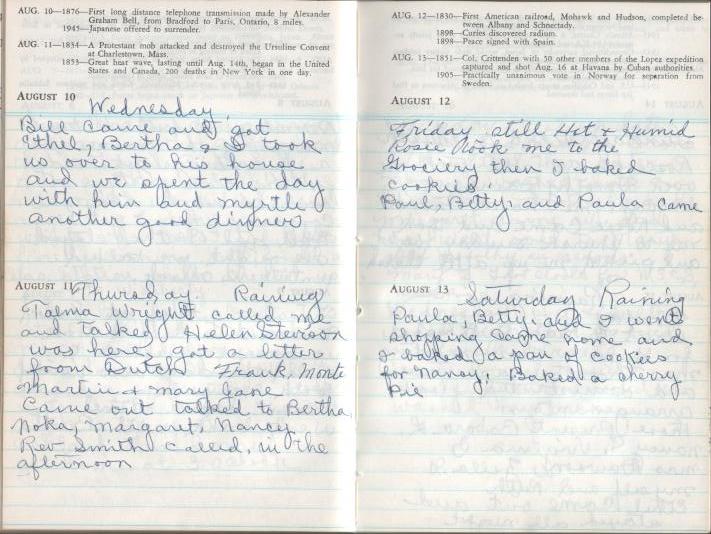 AUG. 10—1876—First long distance telephone transmission made by Alexander
Graham Bell, from Bradford to Paris, Ontario, 8 miles.
1945—Japanese offered to surrender.
AUG. 11—1834—A Protestant mob attacked and destroyed the Ursuline Convent
at Charlestown, Mass.
1853—Great heat wave, lasting until Aug. 14th, began in the United
States and Canada, 200 deaths in New York in one day.
AUGUST 10
Wednesday
Bill came and got
Ethel, Bertha & I took
us over to his house
and we spent the day
with him and myrtle
another good dinner
AUGUST 11
Thursday. Raining
Talma Wright called me
and talked Helen Stevson
was here, got a letter
from Dutch Frank, Monte
Martin + mary Jane
Came out talked to Bertha,
Noka, Margaret, Nancy
Rev Smith called, in the
afternoon
AUG. 12—1830—First American railroad, Mohawk and Hudson, completed be-
tween Albany and Schnectady.
1898—Curies discovered radium.
1898—Peace signed with Spain.
AUG. 13—1851—Col. Crittenden with 50 other members of the Lopez expedition
captured and shot Aug. 16 at Havana by Cuban authorities.
1905—Practically unanimous vote in Norway for separation from
Sweden.
AUGUST 12
Friday still Hot + Humid
Rosie took me to the
Grociery then I baked
cookies.
Paul, Betty, and Paula came
AUGUST 13
Saturday Raining
Paula, Betty, and I went
shopping came home and
I baked a pan of cookies
for Nancy. Baked a cherry
Pie